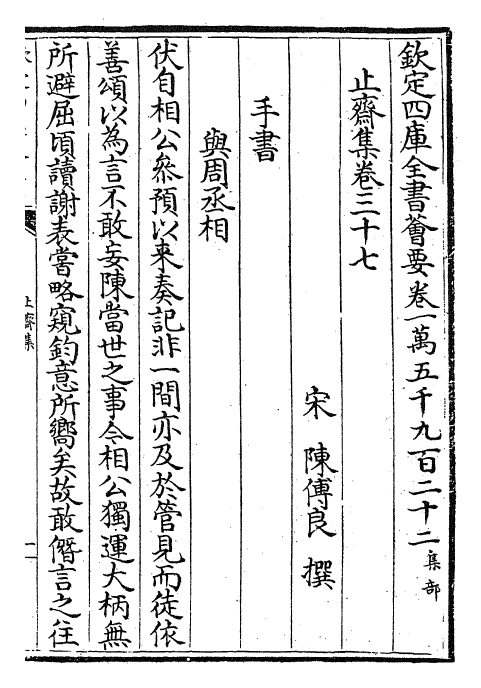 欽定四庫全書薈要卷一萬五千九百二十二集部
止齋集卷三十七
宋 陳傅良 撰
手書
與周丞相
伏自相公叅預以来奏記非一間亦及於管見而徒依
善頌以為言不敢妄陳當世之事今相公獨運大柄無
所避屈頃讀謝表嘗略窺鈞意所嚮矣故敢僭言之往
止齋集